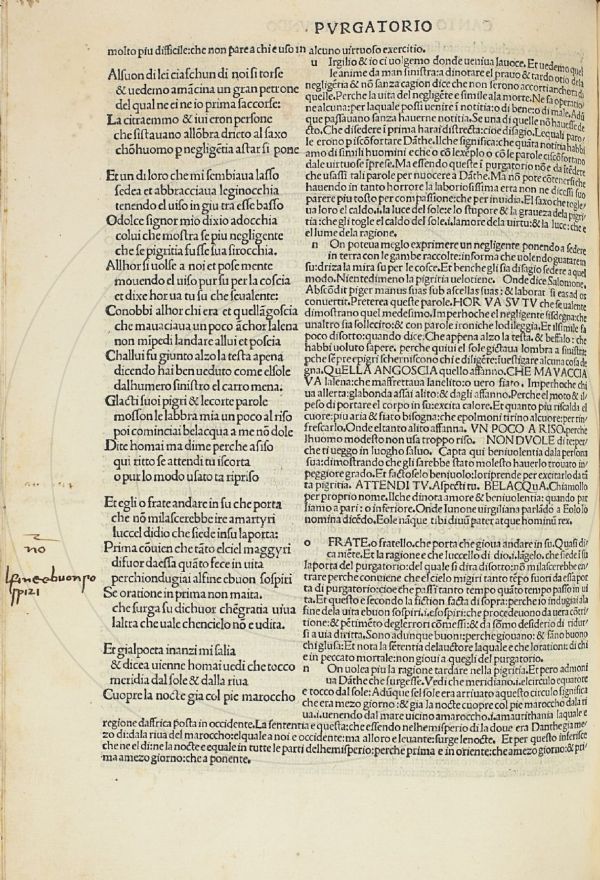 PVRGATORIO
molto piu difficile:che non pare a chi e uso in alcuno uirtuoso exercitio.
Alsuon di lei ciaschun di noi si torse
& uedemo amãcina un gran petrone
del qual ne ei ne io prima saccorse:
La citraemmo & iui eron persone
che sistauano allõbra drieto al saxo
chõhuomo p negligẽtia astar si pone
Et un di loro che mi sembiaua lasso
sedea et abbracciaua leginocchia
tenendo el uiso in giu tra esse basso
O dolce signor mio dixio adocchia
colui che mostra se piu negligente
che se pigritia fusse sua sirocchia.
Allhor si uolse a noi et pose mente
mouendo el uiso pur su per la coscia
et dixe hor ua tu su che seualente:
Conobbi alhor chi era et quellãgoscia
che mauaciaua un poco ãchor lalena
non mipedi landare allui et poscia
Challui fu giunto alzo la testa apena
dicendo hai ben ueduto come elsole
dalhumero sinistro el carro mena.
Glacti suoi pigri & lecorte parole
mosson le labbra mia un poco al riso
poi cominciai belacqua a me nõ dole
Di te homai ma dime perche asiso
qui ritto se attendi tu iscorta
o pur lo modo usato ta ripriso
Et egli o frate andare in su che porta
che nõ milascerebbe ire amartyri
luccel didio che siede insu laporta:
Prima cõuien che tãto elciel maggyri
difuor daessa quãto fece in uita
perchiondugiai alfine ebuon sospiri
Se oratione in prima non maita.
che surga su dichuor chẽgratia uiua
laltra che uale chencielo nõ e udita.
Et gialpoeta inanzi mi salia
& dicea uienne homai uedi che tocco
meridia dal sole & dalla riua
Cuopre la nocte gia col pie maroccho
u Irgilio & io ci uolgemo donde ueniua lauoce. Et uedemo quel
le anime da man sinistra:a dinotare el prauo & tardo otio della
negligẽria & nõ sanza cagion dice che non serono accorti anchora di
quelle. Perche la uita del negligẽte e simile ala morte. Ne fa operatio
ne alcuna:per laquale possi uenire i notitia:o di beneo di male. Adũ
que passauano sanza hauerne notitia. Se una di quelle nõ hauesse de
cto. Che disedere i prima harai distrecta:cioe disagio. Lequali paro/
le erono p iscõfortare Dãthe. Ilche significa:che quãta notitia habbi
amo di simili huomini echi o cõ lexẽplo o cõ le parole ciscõfortano
dale uirtuose ĩprese. Ma essendo queste i purgatorio nõe da stedere
che usassi tali parole per nuocere a Dãthe. Ma nõ pote cõtenersi che
hauendo in tanto horrore la laboriosissima erta non ne dicessi suo
parere piu tosto per compassione:che per inuidia. El saxo che togle/
ua loro el caldo.i.la luce del sole:e lo stupore & la graueza dela pigri
tia:che gli togle el caldo del sole.i.lamore dela uirtu:& la luce:che e
el lume della ragione.
n On poteua meglo exprimere un negligente ponendo a sedere
in terra con le gambe raccolte:informa che uolendo guatare in
su:driza la mira su per le cosce. Et benche gli sia disagio sedere a quel
modo. Nientedimeno la pigritia uelotiene. Onde dice Salomone,
Abscõdit piger manus suas sub ascellas suas: & laborat si eas ad os
conuertit. Preterea queste parole. HOR VA SV TV che se ualente
dimostrano quel medesimo. Imperhoche el negligente sisdegna:che
unaltro sia sollecito:& con parole ironiche lodileggia. Et ilsimile fa
poco disotto:quando dice: Che appena alzo la testa. & beffalo: che
habbi uoluto sapere. perche quiui el sole gictaua lombra a sinistra:
pche sẽpre epigri schernisconochi e diligẽte:iuestigare alcuna cosa de
gna. QuELLA ANGOSCIA quello affanno. CHE MAVACCIA
VA lalena:che maffrettaua lanelito:o uero fiato. Imperhoche chi
ua allerta:glabonda assai alito:& dagli affanno. Perche el moto & il
peso di portare el corpo in su:excita calore. Et quanto piu riscalda el
cuore:piu aria & fiato bisogna:che epolmoni tirino alcuore:per rin/
frescarlo. Onde el tanto alito affanna. VN POCO A RISO. perche
lhuomo modesto non usa troppo riso. NON DVOLE di te:per
che ti ueggo in luogho saluo. Capta qui beniuolentia dalla persona
sua:dimostrando che gli sarebbe stato molesto hauerlo trouato in
peggiore grado. Et factoselo beniuolo:loriprende per excitarlo da tã
ta pigritia. ATTENDI TV. Aspecti tu. BELACQVA. Chiamollo
per proprio nome. Ilche dinota amore & beniuolentia: quando par
liamo a pari:o inferiore. Onde Iunone uirgiliana parlãdo a Eolo lo
nomina dicẽdo. Eole nãque tibi diuũ pater atque hominũ rex.
o FRATE. o fratello. che porta che gioua andare in su. Quasi di
ca niẽte. Et la ragione che luccello di dio.i.lãgelo. che siede ĩ su
laporta del purgatorio:del quale si dira disotto:nõ milascerebbe en/
trare perche conuiene che el cielo migiri tanto tẽpo fuori da essa por
ta di purgatorio:cioe che passi tanto tempo quãto tempo passo in ui
ta. Et questo e secondo la fiction facta di sopra:perche io indugiai ala
fine dela uita ebuoni sospiri.i.esospiri:che procedeuono da uera cõtri
tione:& pẽtimẽto deglerrori cõmessi:& da sõmo desiderio di ridur
si a uia diritta. Sono adunque buoni:perche giouano:& fãno buono
chi glusa: Et nota la sententia delauctore laquale e che loratione: di chi
e in peccato mortale:non gioui a quegli del purgatorio.
n On uolea piu la ragione tardare nella pigritia. Et pero admoni
ua Dãthe che surgesse. Vedi che meridiano.i.el circulo equatore
e tocco dal sole: Adũque sel sole era arriuato aquesto circulo significa
che era mezo giorno:& gia la nocte cuopre col pie maroccho dala ri
ua.i.uenendo dal mare uicino amaroccho.i.amauritania laquale e
regione daffrica posta in occidente. La sententia e questa:che essendo nelhemisperio di la doue era Danthe gia me
zo di:dala riua del maroccho:elquale a noi e occidente:ma alloro e leuante:surge lenocte. Et per questo inferisce
che ne el di:ne la nocte e equale in tutte le parti delhemisperio:perche prima e in oriente:che a mezo giorno:& pri/
ma a mezo giorno:che a ponente.
no